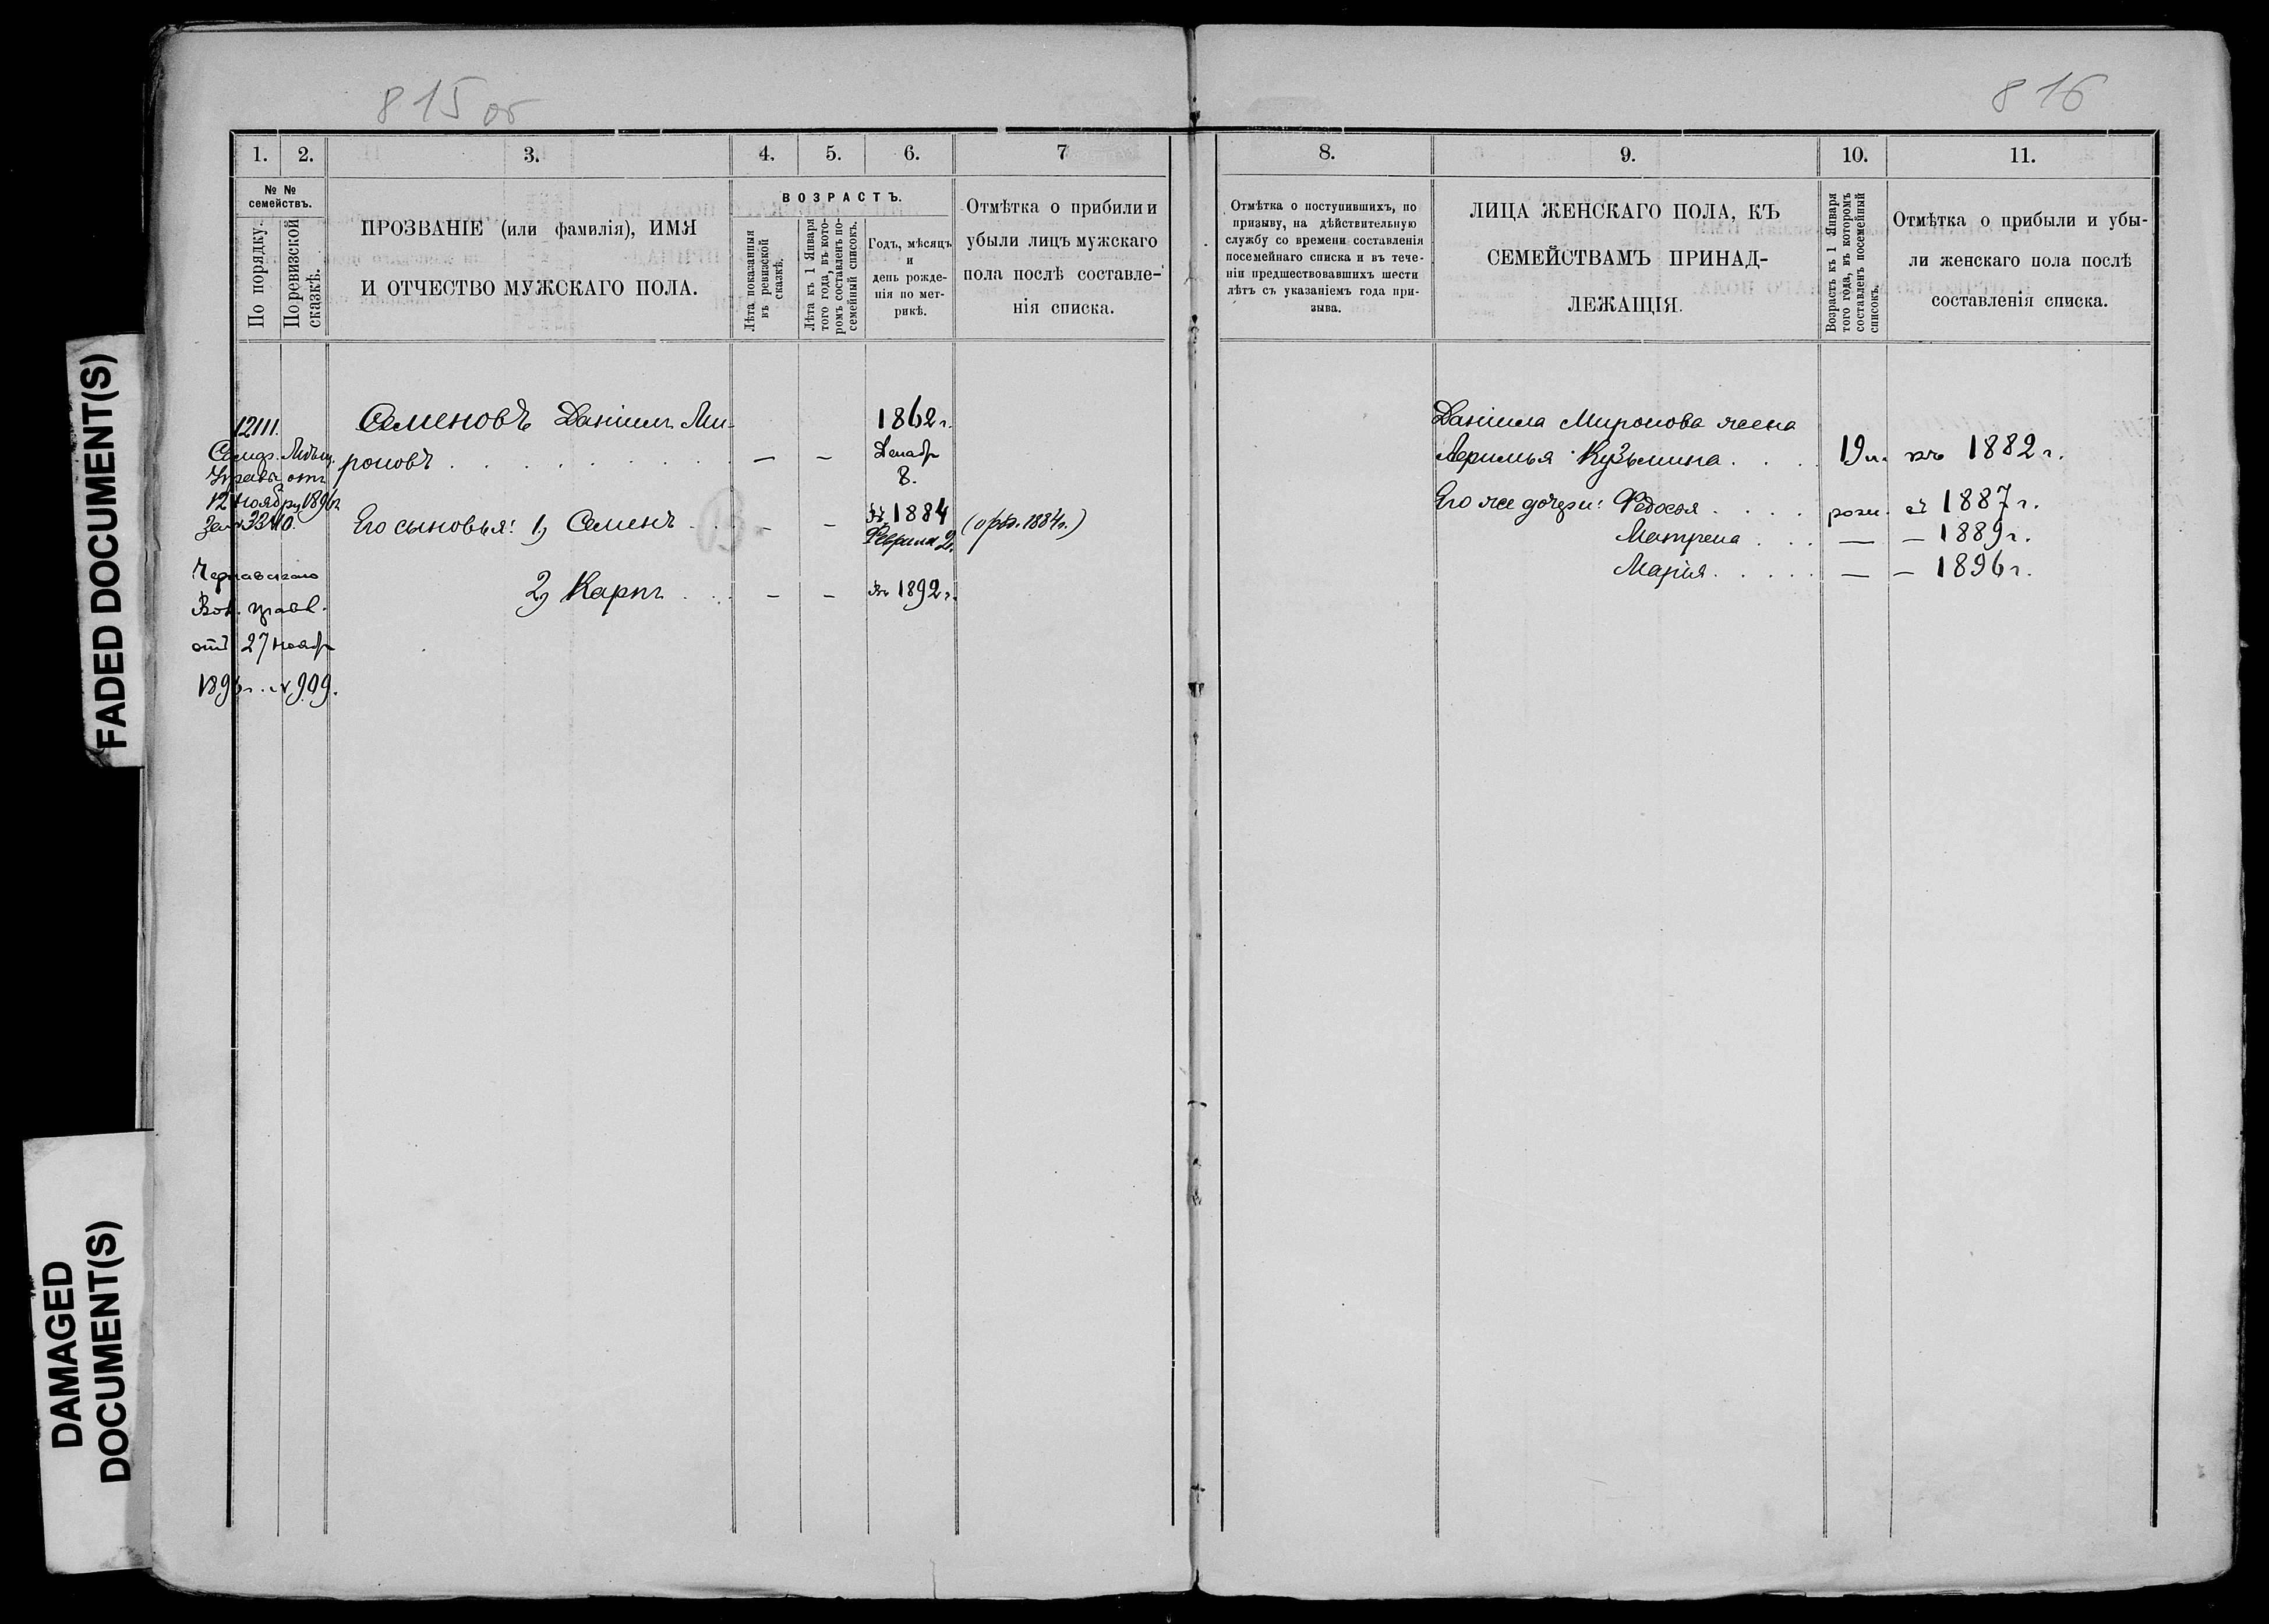 815 об
1. 2. 3. 4. 5. 6. 7
№ №
семействъ.
По порядку.
По ревизской
сказкѣ.
ПРОЗВАНІЕ (или фамилія), ИМЯ
И ОТЧЕСТВО МУЖСКАГО ПОЛА.
ВОЗРАСТЪ.
Лѣта показанныя
въ ревизской
сказкѣ.
Лѣта къ 1 Января
того года, въ кото-
ромъ составленъ по-
семейный списокъ.
Годъ, мѣсяцъ
и
день рожде-
нія по мет-
рикѣ.
Отмѣтка о прибыли и
убыли лицъ мужскаго
пола послѣ составле-
нія списка.
12111.
Самар. Мѣщ.
Управы отъ
12 Ноября 1896 г.
за № 33410.
Чернавскаго
Вол. правл.
отъ 27 Нояб
1896 г. № 909.
Семеновъ Даніилъ Ми-
роновъ . . . . . . . . — —
1862 г.
Декабр
8.
Его сыновья: 1, Семенъ . . — — въ 1884 (обр. 1884 г.)
Февраля 2.
2, Карпъ . . . — — въ 1892 г.
816
8. 9. 10. 11.
Отмѣтка о поступившихъ, по
призыву, на дѣйствительную
службу со времени составленія
посемейнаго списка и въ тече-
ніи предшествовавшихъ шести
лѣтъ съ указаніемъ года при-
зыва.
ЛИЦА ЖЕНСКАГО ПОЛА, КЪ
СЕМЕЙСТВАМЪ ПРИНАД-
ЛЕЖАЩІЯ.
Возрастъ къ 1 Января
того года, въ которомъ
составленъ посемейный
списокъ.
Отмѣтка о прибыли и убы-
ли женскаго пола послѣ
составленія списка.
Даніила Миронова жена
Кузьмина . . . 19 л. въ 1882 г.
Его же дочери: Федосья . . . . рожд. въ 1887 г.
Матрена . . . — — 1889 г.
Марія . . . . . — — 1896 г.
FADED DOCUMENT(S)
DAMAGED
DOCUMENT(S)